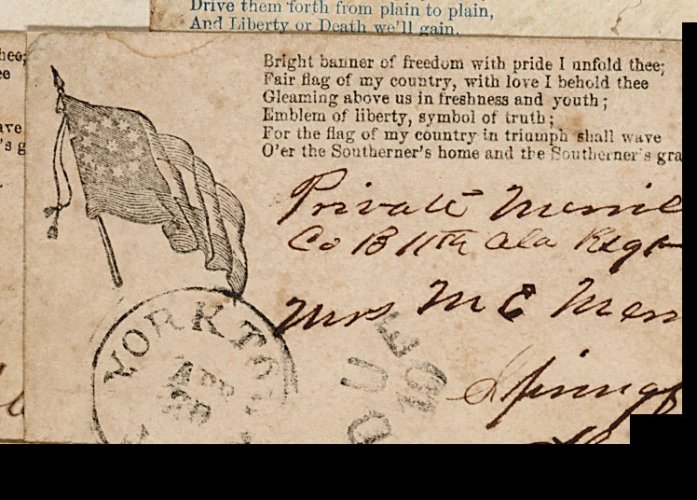 Drive them forth from plain to plain,
And Liberty or Death we'll gain.
Bright banner of freedom with pride I unfold thee;
Fair flag of my country, with love I behold thee
Gleaming above us in freshness and youth;
Emblem of liberty, symbol of truth;
For the flag of my country in triumph shall wave
O'er the Southerner's home and the Southerner's gra
Private
Co B 11th Ala Regt
Mrs M E
YORKTO
APR
DUE 10